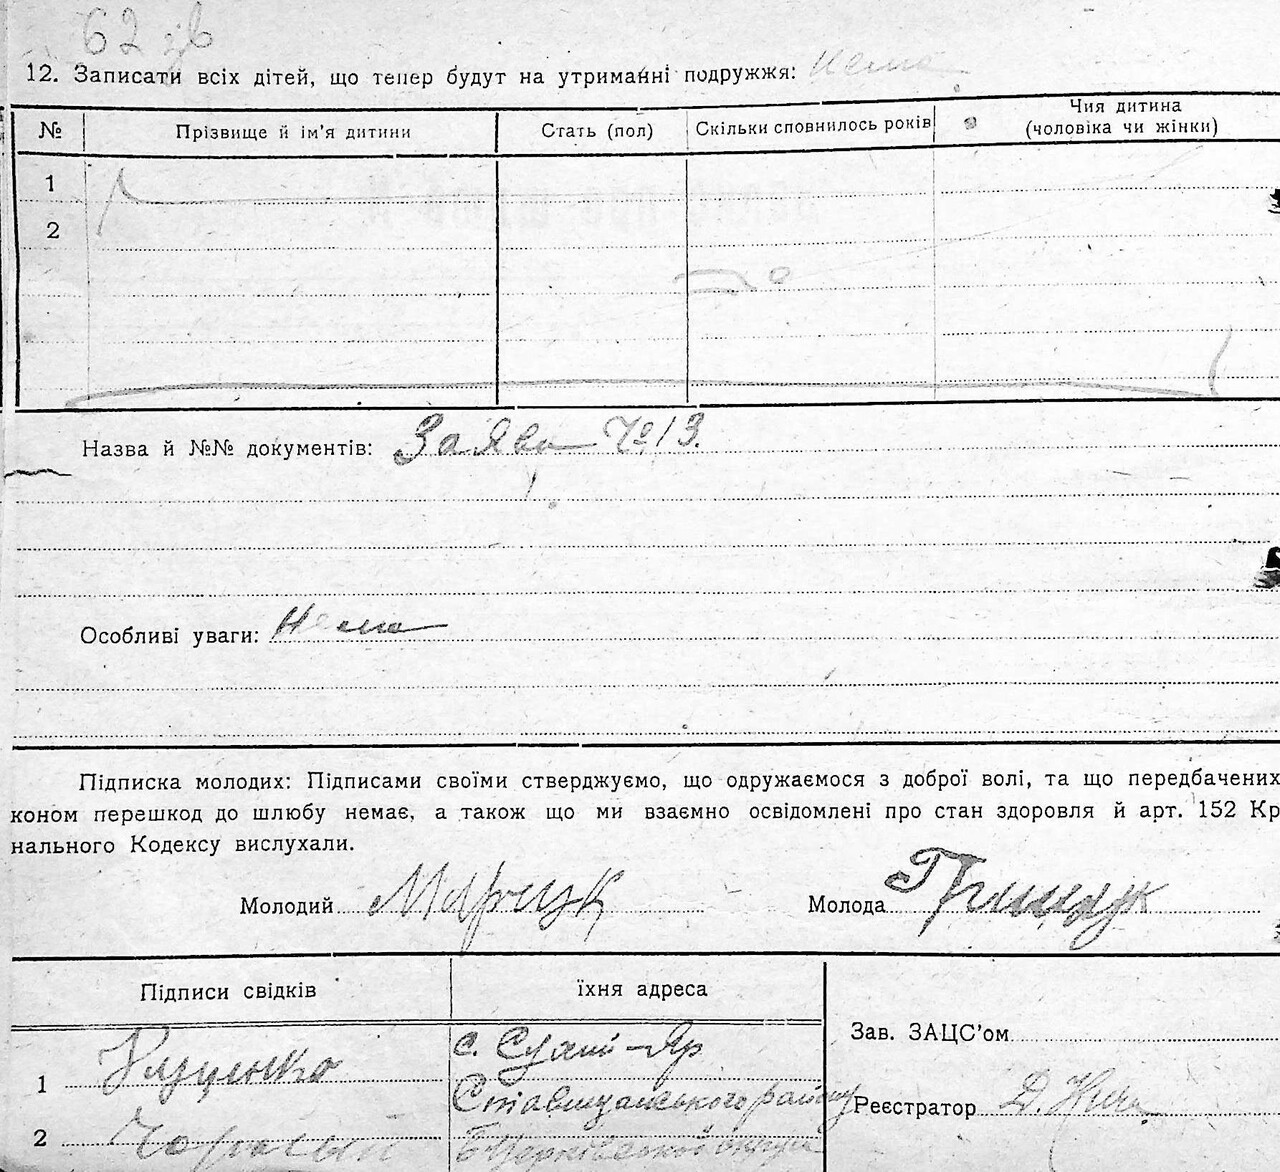 62 зв
12. Записати всіх дітей, що тепер будут на утриманні подружжя: Нема
№ Прізвище й ім'я дитини Стать (пол) Скільки сповнилось років Чия дитина
(чоловіка чи жінки)
1
2
Назва й №№ документів: Заява № 13.
Особливі уваги: Нема
Підписка молодих: Підписами своїми стверджуємо, що одружаємося з доброї волі, та що передбачених
коном перешкод до шлюбу немає, а також що ми взаємно освідомлені про стан здоровля й арт. 152 Кр
нального Кодексу вислухали.
Молодий Марчук Молода Грищук
Підписи свідків їхня адреса
с. Сухий-Яр
Зав. ЗАЦС'ом
1
Ставищанського району
Реєстратор Д.
2 Б Церківської округи